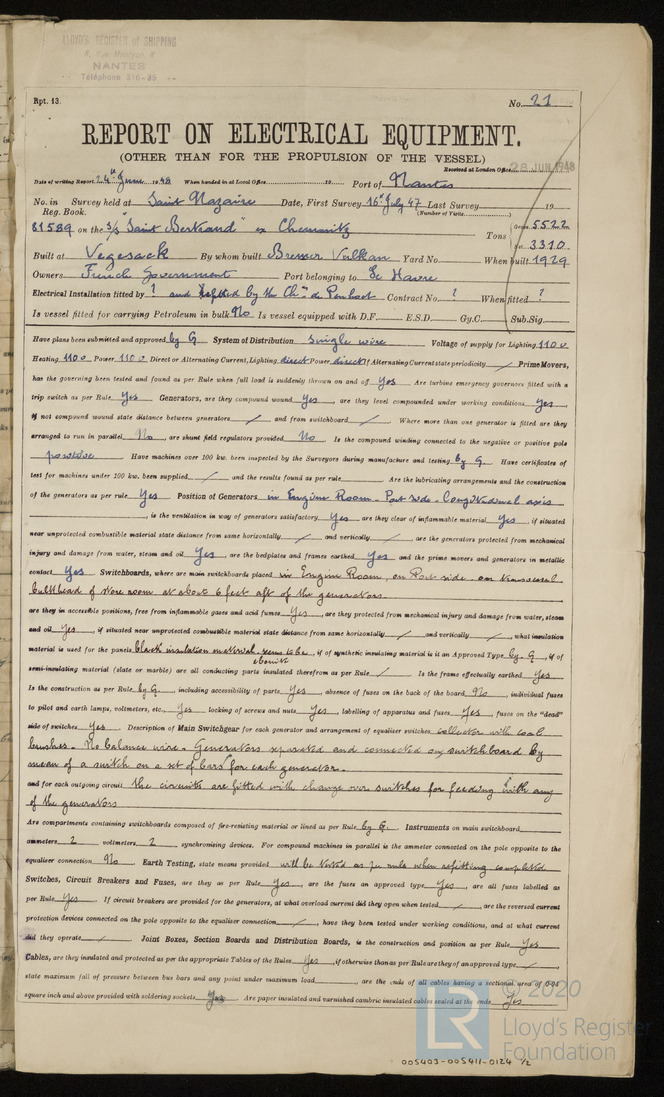 LLOYD'S REGISTER of SHIPPING
NANTES
Téléphone 316-35
Rpt. 13.
No. 21
REPORT ON ELECTRICAL EQUIPMENT.
(OTHER THAN FOR THE PROPULSION OF THE VESSEL)
Received at London Office 28 JUN 1948
Date of writing Report 24th June 1948 When handed in at Local Office 19 Port of Nantes
No. in Survey held at Saint Nazaire Date, First Survey 16th July 47 Last Survey 19
Reg. Book. (Number of Visits)
81589 on the S/S "Saint Bertrand" ex Chemnitz Tons Gross 5522
Net 3310
Built at Vegesack By whom built Bremer Vulkan Yard No. When built 1929
Owners French Government Port belonging to Le Havre
Electrical Installation fitted by ? and refitted by the Ch. de Penhoet Contract No. ? When fitted ?
Is vessel fitted for carrying Petroleum in bulk No Is vessel equipped with D.F. E.S.D. Gy.C. Sub.Sig.
Have plans been submitted and approved by G. System of Distribution single wire Voltage of supply for Lighting 110 v
Heating 110 v Power 110 v Direct or Alternating Current, Lighting direct Power direct If Alternating Current state periodicity / Prime Movers,
has the governing been tested and found as per Rule when full load is suddenly thrown on and off Yes Are turbine emergency governors fitted with a
trip switch as per Rule Yes Generators, are they compound wound Yes, are they level compounded under working conditions Yes,
if not compound wound state distance between generators / and from switchboard / Where more than one generator is fitted are they
arranged to run in parallel No, are shunt field regulators provided No Is the compound winding connected to the negative or positive pole
positive Have machines over 100 kw. been inspected by the Surveyors during manufacture and testing by G. Have certificates of
test for machines under 100 kw. been supplied / and the results found as per rule Are the lubricating arrangements and the construction
of the generators as per rule Yes Position of Generators in Engine Room - Port side - longitudinal axis
, is the ventilation in way of generators satisfactory Yes are they clear of inflammable material Yes, if situated
near unprotected combustible material state distance from same horizontally / and vertically /, are the generators protected from mechanical
injury and damage from water, steam and oil Yes, are the bedplates and frames earthed Yes and the prime movers and generators in metallic
contact Yes Switchboards, where are main switchboards placed in Engine Room, on Port side - on transversal
bulkhead of store room at about 6 feet aft of the generators.
are they in accessible positions, free from inflammable gases and acid fumes Yes, are they protected from mechanical injury and damage from water, steam
and oil Yes, if situated near unprotected combustible material state distance from same horizontally / and vertically /, what insulation
material is used for the panels black insulation material seems to be ebonite, if of synthetic insulating material is it an Approved Type by G, if of
semi-insulating material (slate or marble) are all conducting parts insulated therefrom as per Rule / Is the frame effectually earthed Yes
Is the construction as per Rule by G., including accessibility of parts Yes, absence of fuses on the back of the board No, individual fuses
to pilot and earth lamps, voltmeters, etc. Yes locking of screws and nuts Yes, labelling of apparatus and fuses Yes, fuses on the "dead"
side of switches Yes Description of Main Switchgear for each generator and arrangement of equalizer switches collector with coal
brushes - No balance wire - Generators separated and connected on switchboard by
mean of a switch on a set of bars for each generator.
and for each outgoing circuit the circuits are fitted with change over switches for feeding with any
of the generators
Are compartments containing switchboards composed of fire-resisting material or lined as per Rule by G. Instruments on main switchboard
ammeters 2 voltmeters 2 synchronising devices. For compound machines in parallel is the ammeter connected on the pole opposite to the
equaliser connection No Earth Testing, state means provided will be tested as per rule when refitting completed
Switches, Circuit Breakers and Fuses, are they as per Rule Yes, are the fuses an approved type Yes, are all fuses labelled as
per Rule Yes If circuit breakers are provided for the generators, at what overload current did they open when tested /, are the reversed current
protection devices connected on the pole opposite to the equaliser connection /, have they been tested under working conditions, and at what current
did they operate / Joint Boxes, Section Boards and Distribution Boards, is the construction and position as per Rule Yes
Cables, are they insulated and protected as per the appropriate Tables of the Rules Yes, if otherwise than as per Rule are they of an approved type /,
state maximum fall of pressure between bus bars and any point under maximum load, are the ends of all cables having a sectional area of 0·04
square inch and above provided with soldering sockets Yes Are paper insulated and varnished cambric insulated cables sealed at the ends Yes
© 2020
LR Lloyd's Register
Foundation
005403-005411-0124 1/2